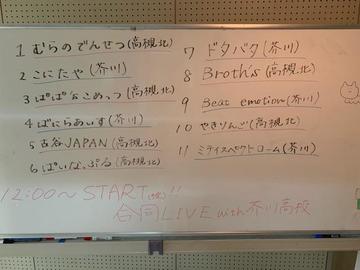 1 むらのでんせつ(高槻北)
2 こにたや(芥川)
3 ぱぱ's こめっつ(高槻北)
4 ばにらあいす(芥川)
5 古谷JAPAN(高槻北)
6 ぱいなっぷる(高槻北)
7 ドタバタ(芥川)
8 Broth's(高槻北)
9 Beat emotion(芥川)
10 やきりんご(高槻北)
11 ミテイスペクトローム(芥川)
12:00〜 START!!
合同LIVE with 芥川高校